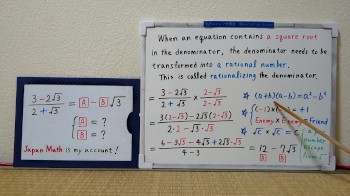 3-2√3 / 2+√3 = A - B √3
{ A = ?
B = ?
Japan Math is my account!
When an equation contains a square root
in the denominator, the denominator needs to be
transformed into a rational number.
This is called rationalizing the denominator.
= 3-2√3 / 2+√3 × 2-√3 / 2-√3
= 3(2-√3)-2√3(2-√3) / 2·2-√3·√3
= 6-3√3-4√3+2√3·√3 / 4-3
☆ (a+b)(a-b)=a²-b²
☆ (-1)×(-1)=+1
Enemy × Enemy = Friend
☆ √c × √c = c
number
escape
from
= 12-?√3